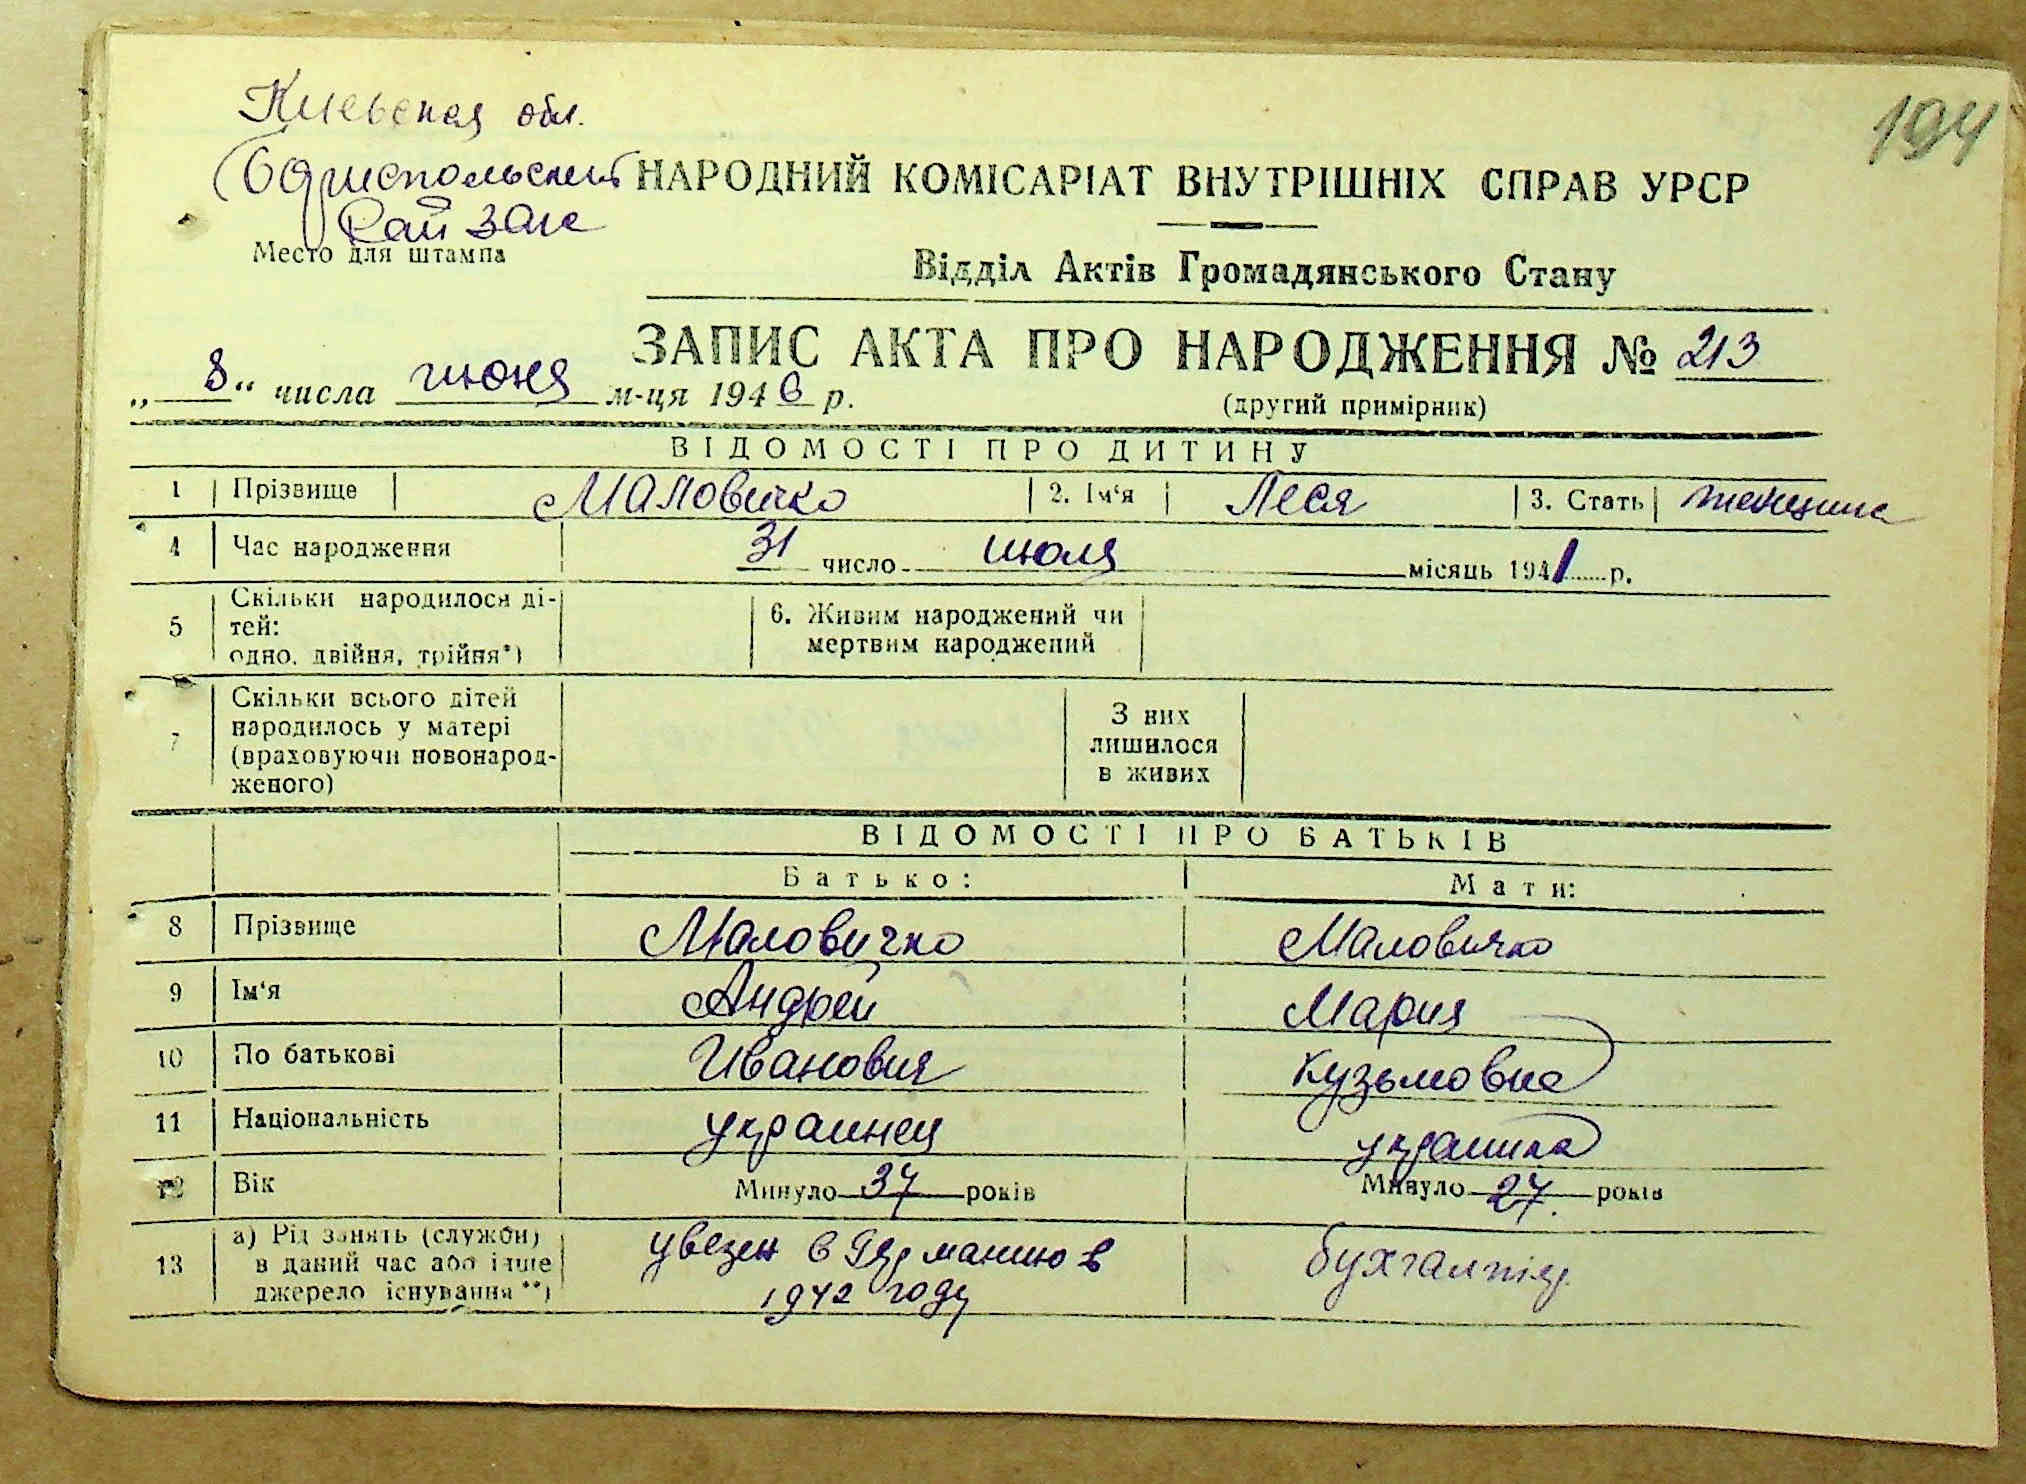 Киевская обл.
194
Бориспольский
Рай загс
НАРОДНИЙ КОМІСАРІАТ ВНУТРІШНІХ СПРАВ УРСР
Место для штампа
Відділ Актів Громадянського Стану
ЗАПИС АКТА ПРО НАРОДЖЕННЯ № 213
„8“ числа июня м-ця 1946 р.
(другий примірник)
ВІДОМОСТІ ПРО ДИТИНУ
1 Прізвище Маловичко 2. Ім‘я Леся 3. Стать женщина
4 Час народження 31 число июля місяць 1941 р.
5 Скільки народилося ді-
тей:
одно, двійня, трійня*)
6. Живим народжений чи
мертвим народжений
7 Скільки всього дітей
народилось у матері
(враховуючи новонарод-
женого)
З них
лишилося
в живих
ВІДОМОСТІ ПРО БАТЬКІВ
Батько: Мати:
8 Прізвище Маловичко Маловичко
9 Ім‘я Андрей Мария
10 По батькові Иванович Кузьмовна
11 Національність украинец украинка
12 Вік Минуло 37 років Минуло 27 років
13 а) Рід занять (служби)
в даний час або інше
джерело існування**)
увезен в Германию в
1942 году
бухгалтер